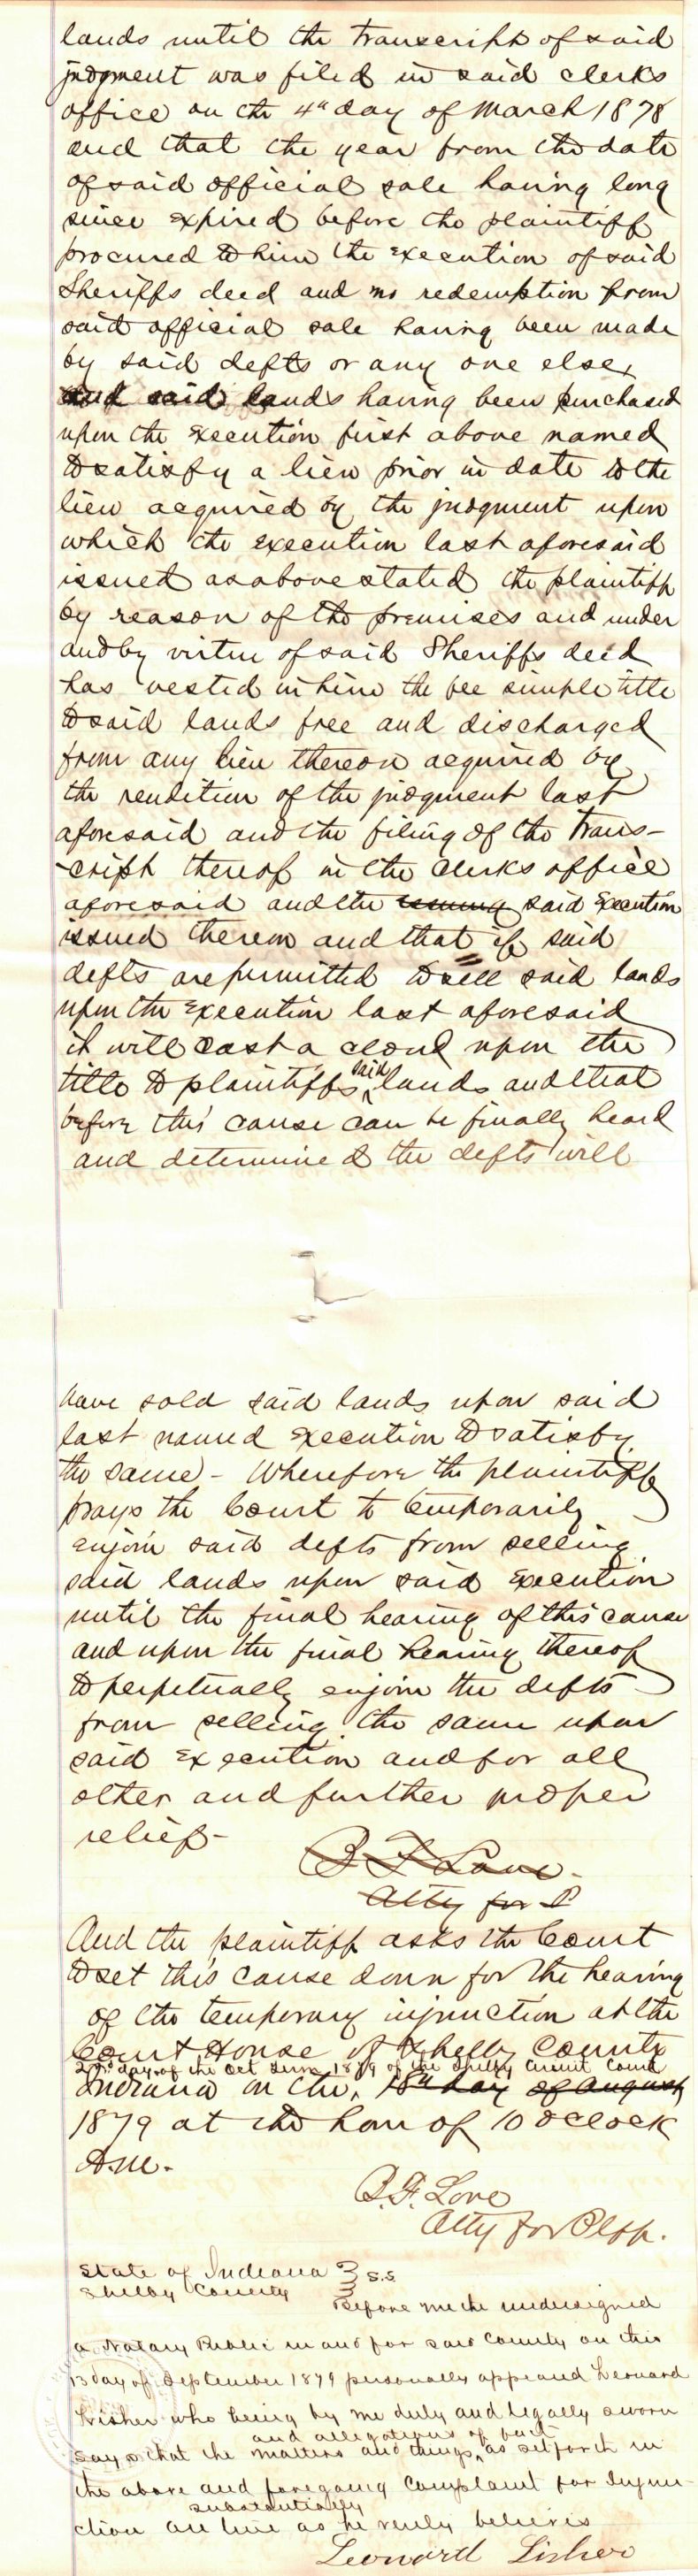 lands until the transcript of said
judgment was filed in said clerks
office on the 4th day of March 1878
and that the year from the date
of said official sale having long
since expired before the plaintiff
procured to him the execution of said
Sheriffs deed and no redemption from
said official sale having been made
by said defts or any one else,
and said lands having been purchased
upon the execution first above named
to satisfy a lien prior in date to the
lien acquired by the judgment upon
which the execution last aforesaid
issued as above stated the plaintiff
by reason of the premises and under
and by virtue of said Sheriffs deed
has vested in him the fee simple title
to said lands free and discharged
from any lien thereon acquired by
the rendition of the judgment last
aforesaid and the filing of the trans-
-cript thereof in the clerks office
aforesaid and the issuing said execution
issued thereon and that if said
defts are permitted to sell said lands
upon the execution last aforesaid
it will cast a cloud upon the
title to plaintiffs said lands and that
before this cause can be finally heard
and determined the defts will
have sold said lands upon said
last named execution to satisfy
the same - Wherefore the plaintiff
prays the Court to temporarily
enjoin said defts from selling
said lands upon said execution
until the final hearing of this cause
and upon the final hearing thereof
to perpetually enjoin the defts
from selling the same upon
said execution and for all
other and further proper
relief -
B F Love
Atty for P
And the plaintiff asks the Court
to set this cause down for the hearing
of the temporary injunction at the
Court House of Shelby County
2nd day of the Oct Term 1879 of the Shelby Circuit Court
Indiana on the 18th day of August
1879 at the hour of 10 oclock
A.M.
B.F. Love
Atty for Plff.
State of Indiana } S.S
Shelby County }
Before me the undersigned
a Notary Public in and for said County on this
13 day of September 1879 personally appeared Leonard
Lisher who being by me duly and legally sworn
and allegations of fact
says that the matters and things, as set forth in
the above and foregoing Complaint for Injun-
substantially
ction are true as he verily believes
Leonard Lisher